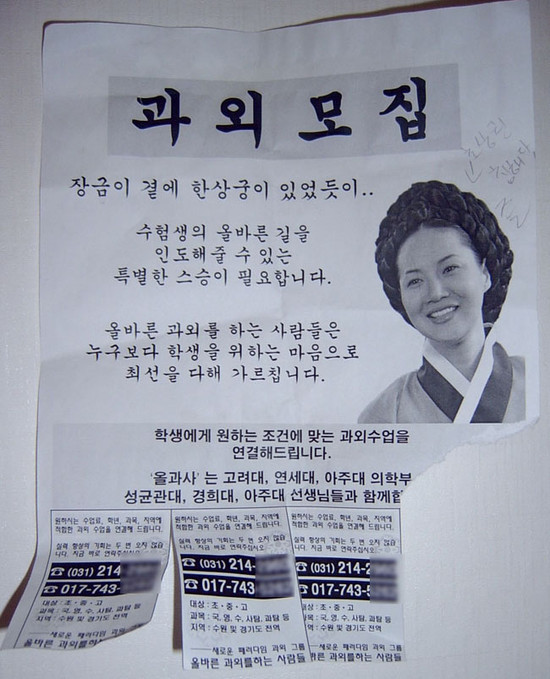 과외모집
장금이 곁에 한상궁이 있었듯이..
수험생의 올바른 길을
인도해줄 수 있는
특별한 스승이 필요합니다.
올바른 과외를 하는 사람들은
누구보다 학생을 위하는 마음으로
최선을 다해 가르칩니다.
학생에게 원하는 조건에 맞는 과외수업을
연결해드립니다.
'올과사' 는 고려대, 연세대, 아주대 의학부
성균관대, 경희대, 아주대 선생님들과 함께합
원하시는 수업료, 학년, 과목, 지역에
적합한 과외 수업을 연결해 드립니다.
실력 향상의 기회는 두 번 오지 않습
니다. 지금 바로 연락주십시오
☎ (031) 214
☎ 017-743
대상 : 초·중·고
과목 : 국, 영, 수, 사탐, 과탐 등
지역 : 수원 및 경기도 전역
새로운 패러다임 과외 그룹
올바른 과외를하는 사람들
원하시는 수업료, 학년, 과목, 지역에
적합한 과외 수업을 연결해 드립니다.
실력 향상의 기회는 두 번 오지 않습
니다. 지금 바로 연락주십시오
☎ (031) 214-
☎ 017-743-
대상 : 초·중·고
과목 : 국, 영, 수, 사탐, 과탐 등
지역 : 수원 및 경기도 전역
새로운 패러다임 과외 그룹
올바른 과외를하는 사람들
료, 학년, 과목, 지역에
수업을 연결해 드립니다.
기회는 두 번 오지 않습
바로 연락주십시오
☎ (031) 214-2
☎ 017-743-5
대상 : 초·중·고
과목 : 국, 영, 수, 사탐, 과탐 등
지역 : 수원 및 경기도 전역
새로운 패러다임 과외 그룹
올바른 과외를하는 사람들